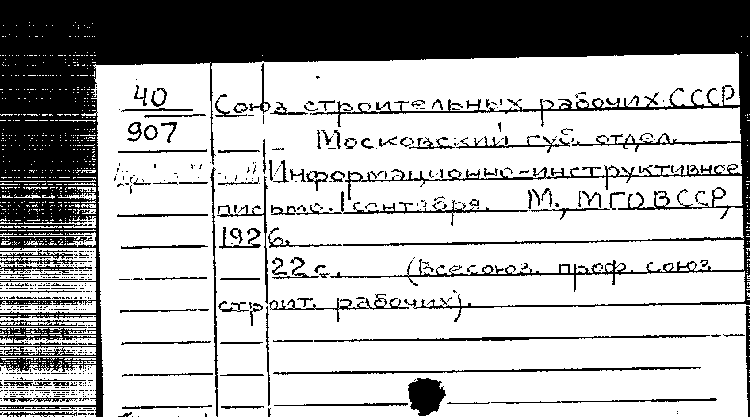 40
Союз строительных рабочих СССР
907
- Московский губ. отдел.
Информационно-инструктивное
письмо. 1 сентября. М., МГО ВССР,
1926.
22 с. (Всесоюз. проф. союз
строит. рабочих).